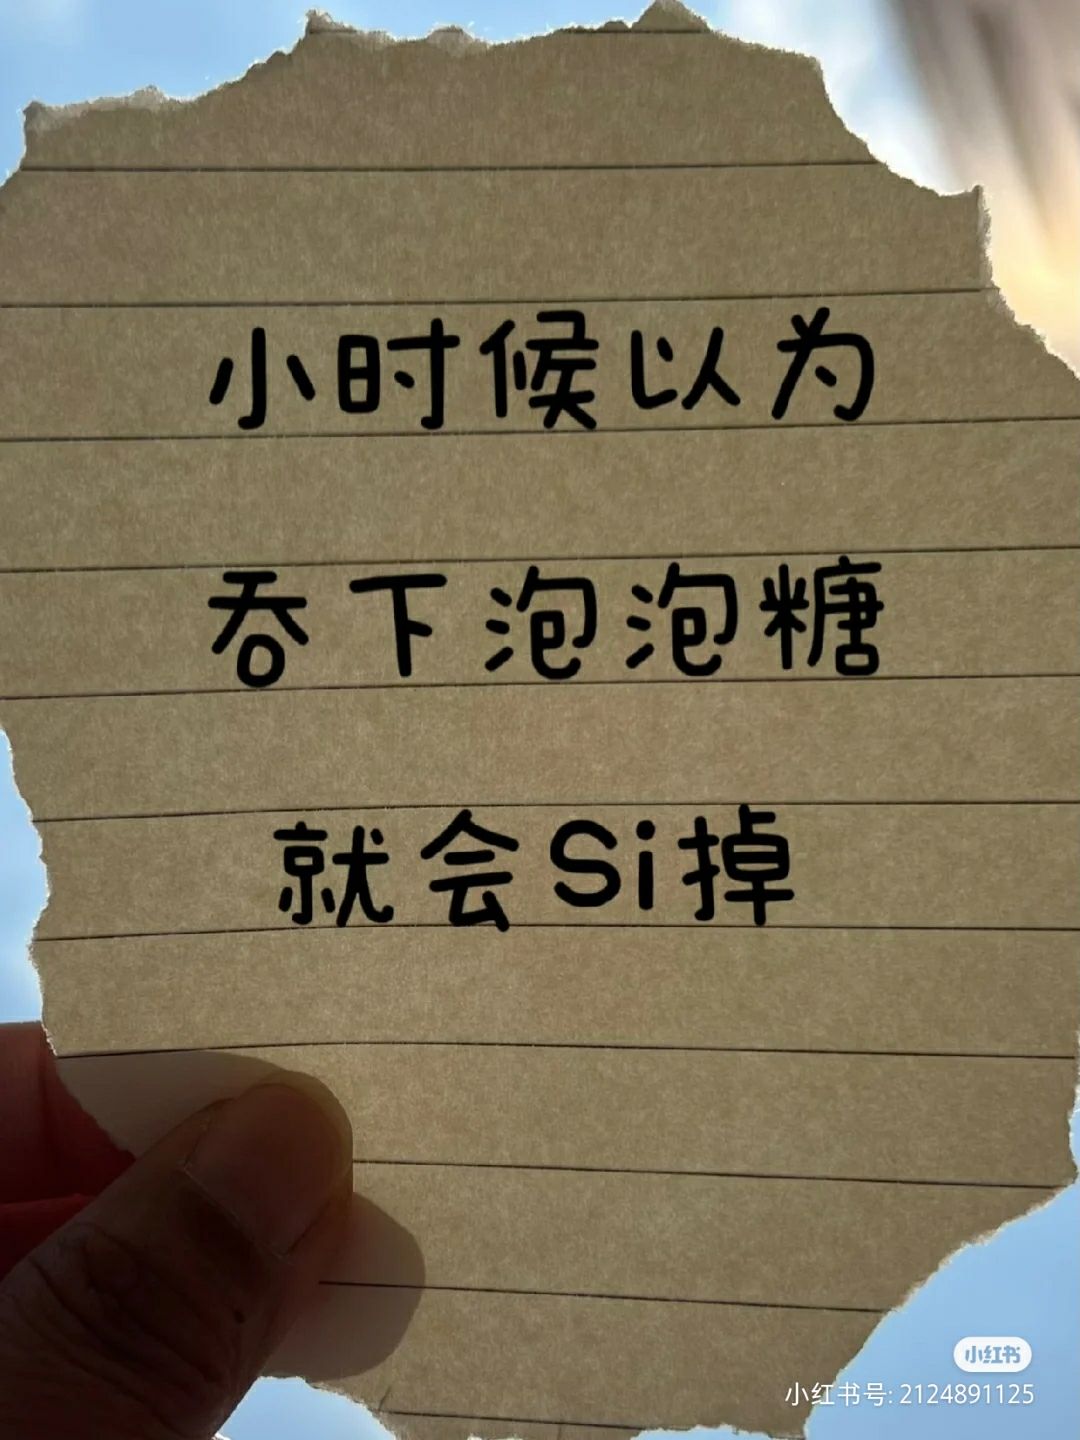 小时候以为
吞下泡泡糖
就会Si掉
小红书
小红书号: 2124891125